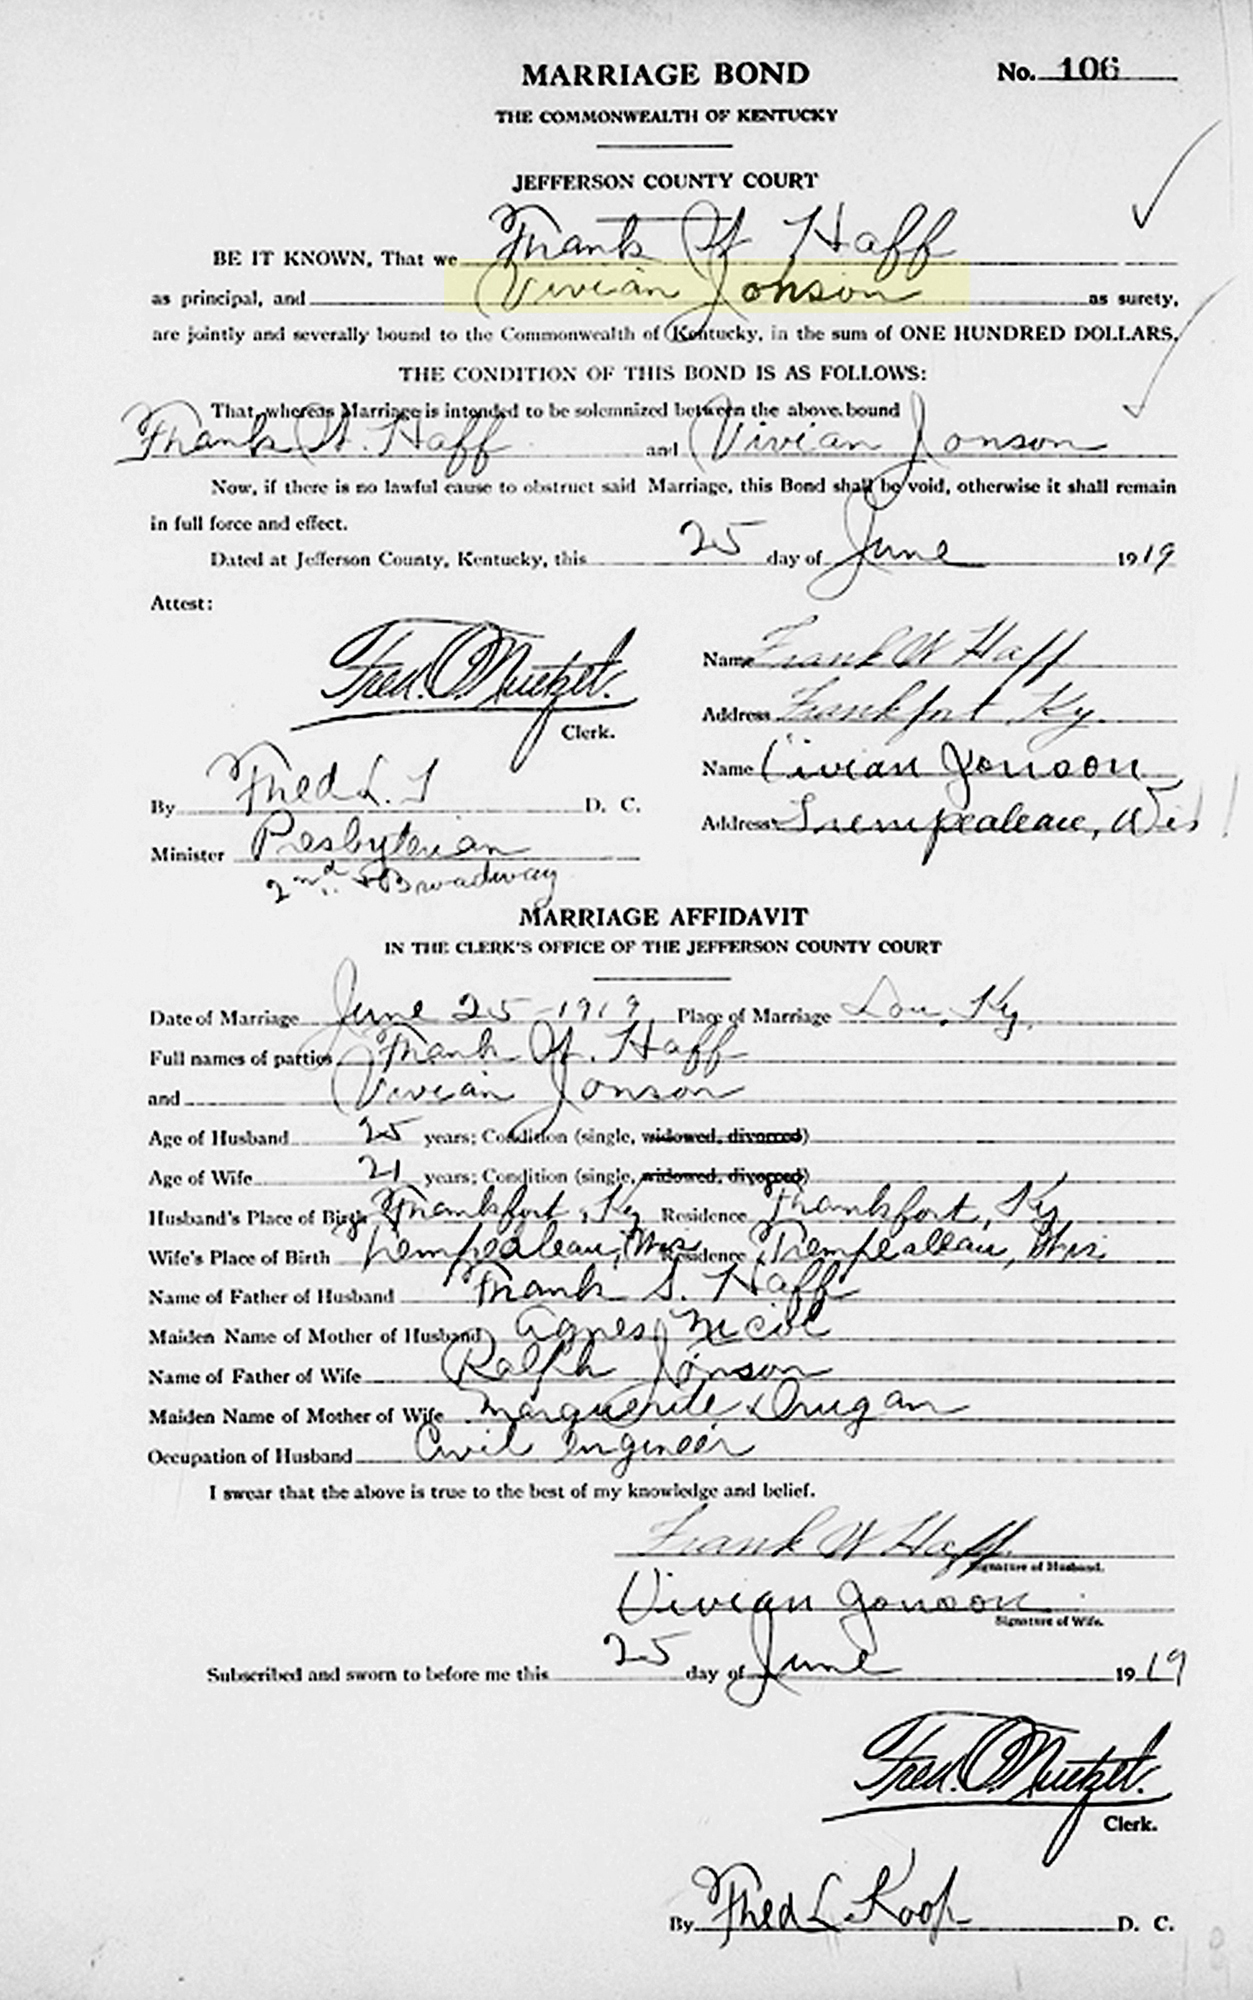 MARRIAGE BOND No. 106
THE COMMONWEALTH OF KENTUCKY
JEFFERSON COUNTY COURT
BE IT KNOWN, That we Frank W Haff
as principal, and Vivian Jonson as surety,
are jointly and severally bound to the Commonwealth of Kentucky, in the sum of ONE HUNDRED DOLLARS.
THE CONDITION OF THIS BOND IS AS FOLLOWS:
That, whereas Marriage is intended to be solemnized between the above bound
Frank W. Haff and Vivian Jonson
Now, if there is no lawful cause to obstruct said Marriage, this Bond shall be void, otherwise it shall remain
in full force and effect.
Dated at Jefferson County, Kentucky, this 25 day of June 1919
Attest:
Name Frank W Haff
Fred. O. Nuetzel.
Address Frankfort, Ky.
Clerk.
Name Vivian Jonson
By Fred L. D. C.
Address Trempealeau, Wis
Minister Presbyterian
2nd. + Broadway
MARRIAGE AFFIDAVIT
IN THE CLERK'S OFFICE OF THE JEFFERSON COUNTY COURT
Date of Marriage June 25 - 1919 Place of Marriage Lou, Ky.
Full names of parties Frank W. Haff
and Vivian Jonson
Age of Husband 25 years; Condition (single, widowed, divorced)
Age of Wife 21 years; Condition (single, widowed, divorced)
Husband's Place of Birth Frankfort, Ky Residence Frankfort, Ky
Wife's Place of Birth Trempealeau, Wis Residence Trempealeau, Wis
Name of Father of Husband Frank S. Haff
Maiden Name of Mother of Husband Agnes Nicol
Name of Father of Wife Ralph Jonson
Maiden Name of Mother of Wife Marguerite Drugan
Occupation of Husband Civil Engineer
I swear that the above is true to the best of my knowledge and belief.
Frank W Haff
Signature of Husband.
Vivian Jonson
Signature of Wife.
Subscribed and sworn to before me this 25 day of June 1919
Fred. O. Nuetzel.
Clerk.
By Fred L Koop D. C.